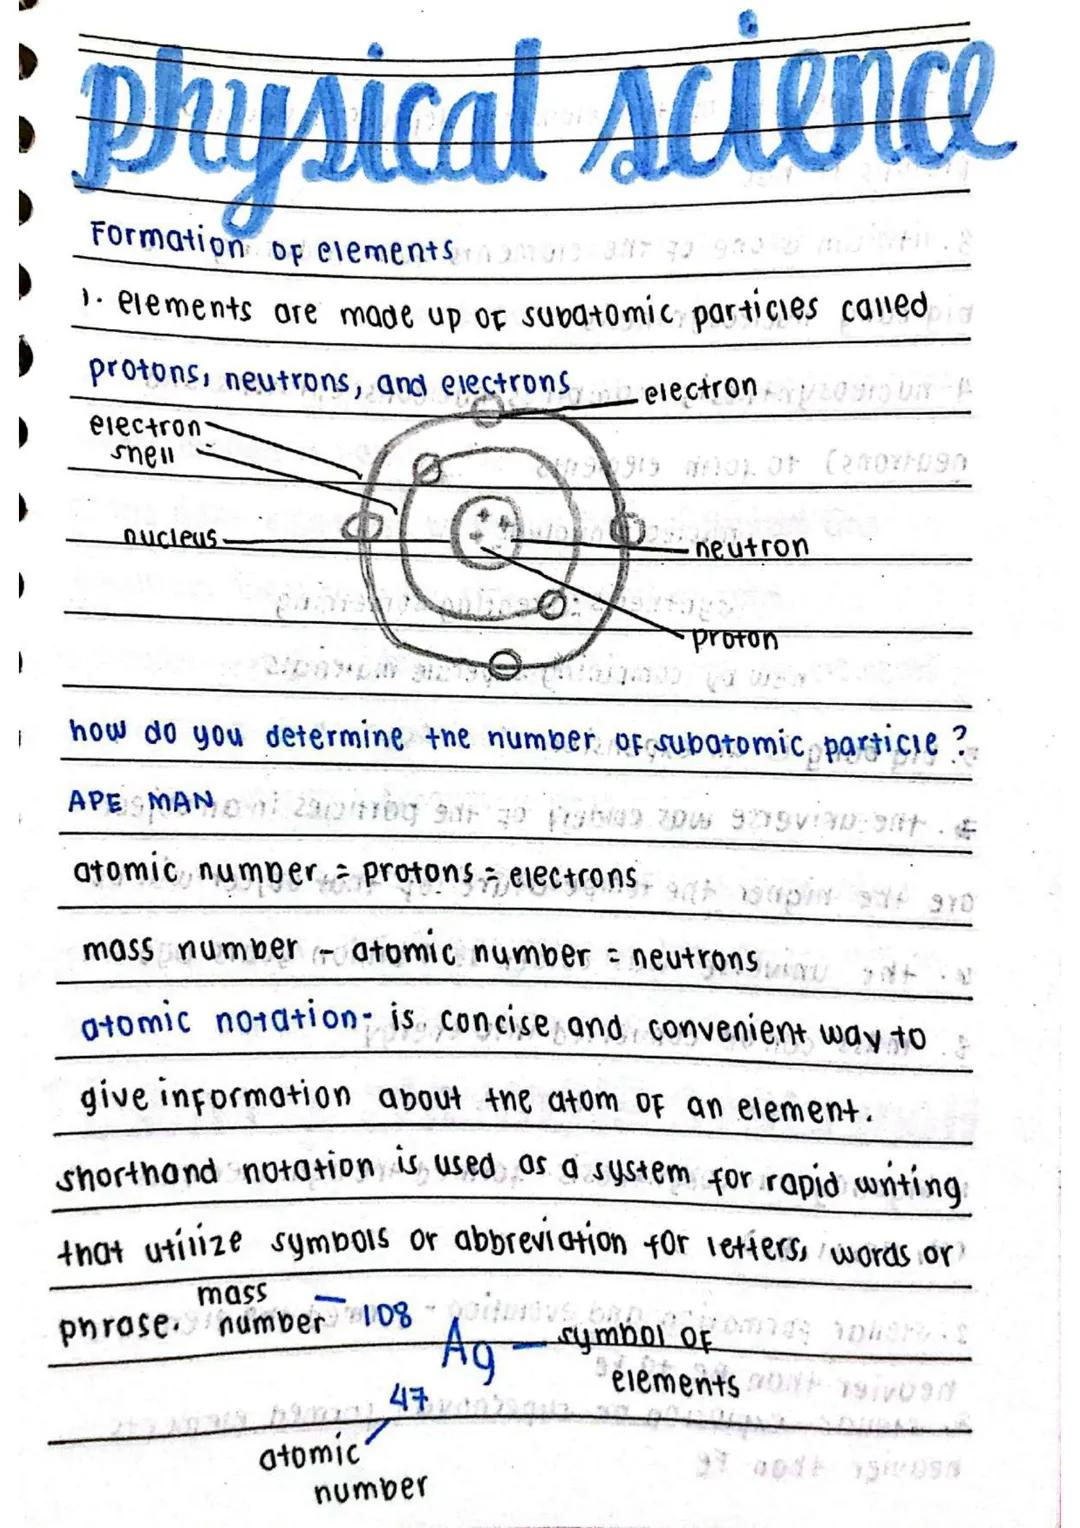 physical science
Formation of elements
1. elements are made up of subatomic particles called
protons, neutrons, and electrons
electron
electron
shell
nucleus
neutron
proton
how do you determine the number of subatomic particle?
APE MAN
atomic number = protons = electrons
mass number - atomic number = neutrons
atomic notation- is concise and convenient way to
give information about the atom of an element.
shorthand notation is used as a system for rapid writing
that utilize symbols or abbreviation for letters, words or
phrase.
mass
number - 108
Ag - symbol of
elements
47
atomic
number